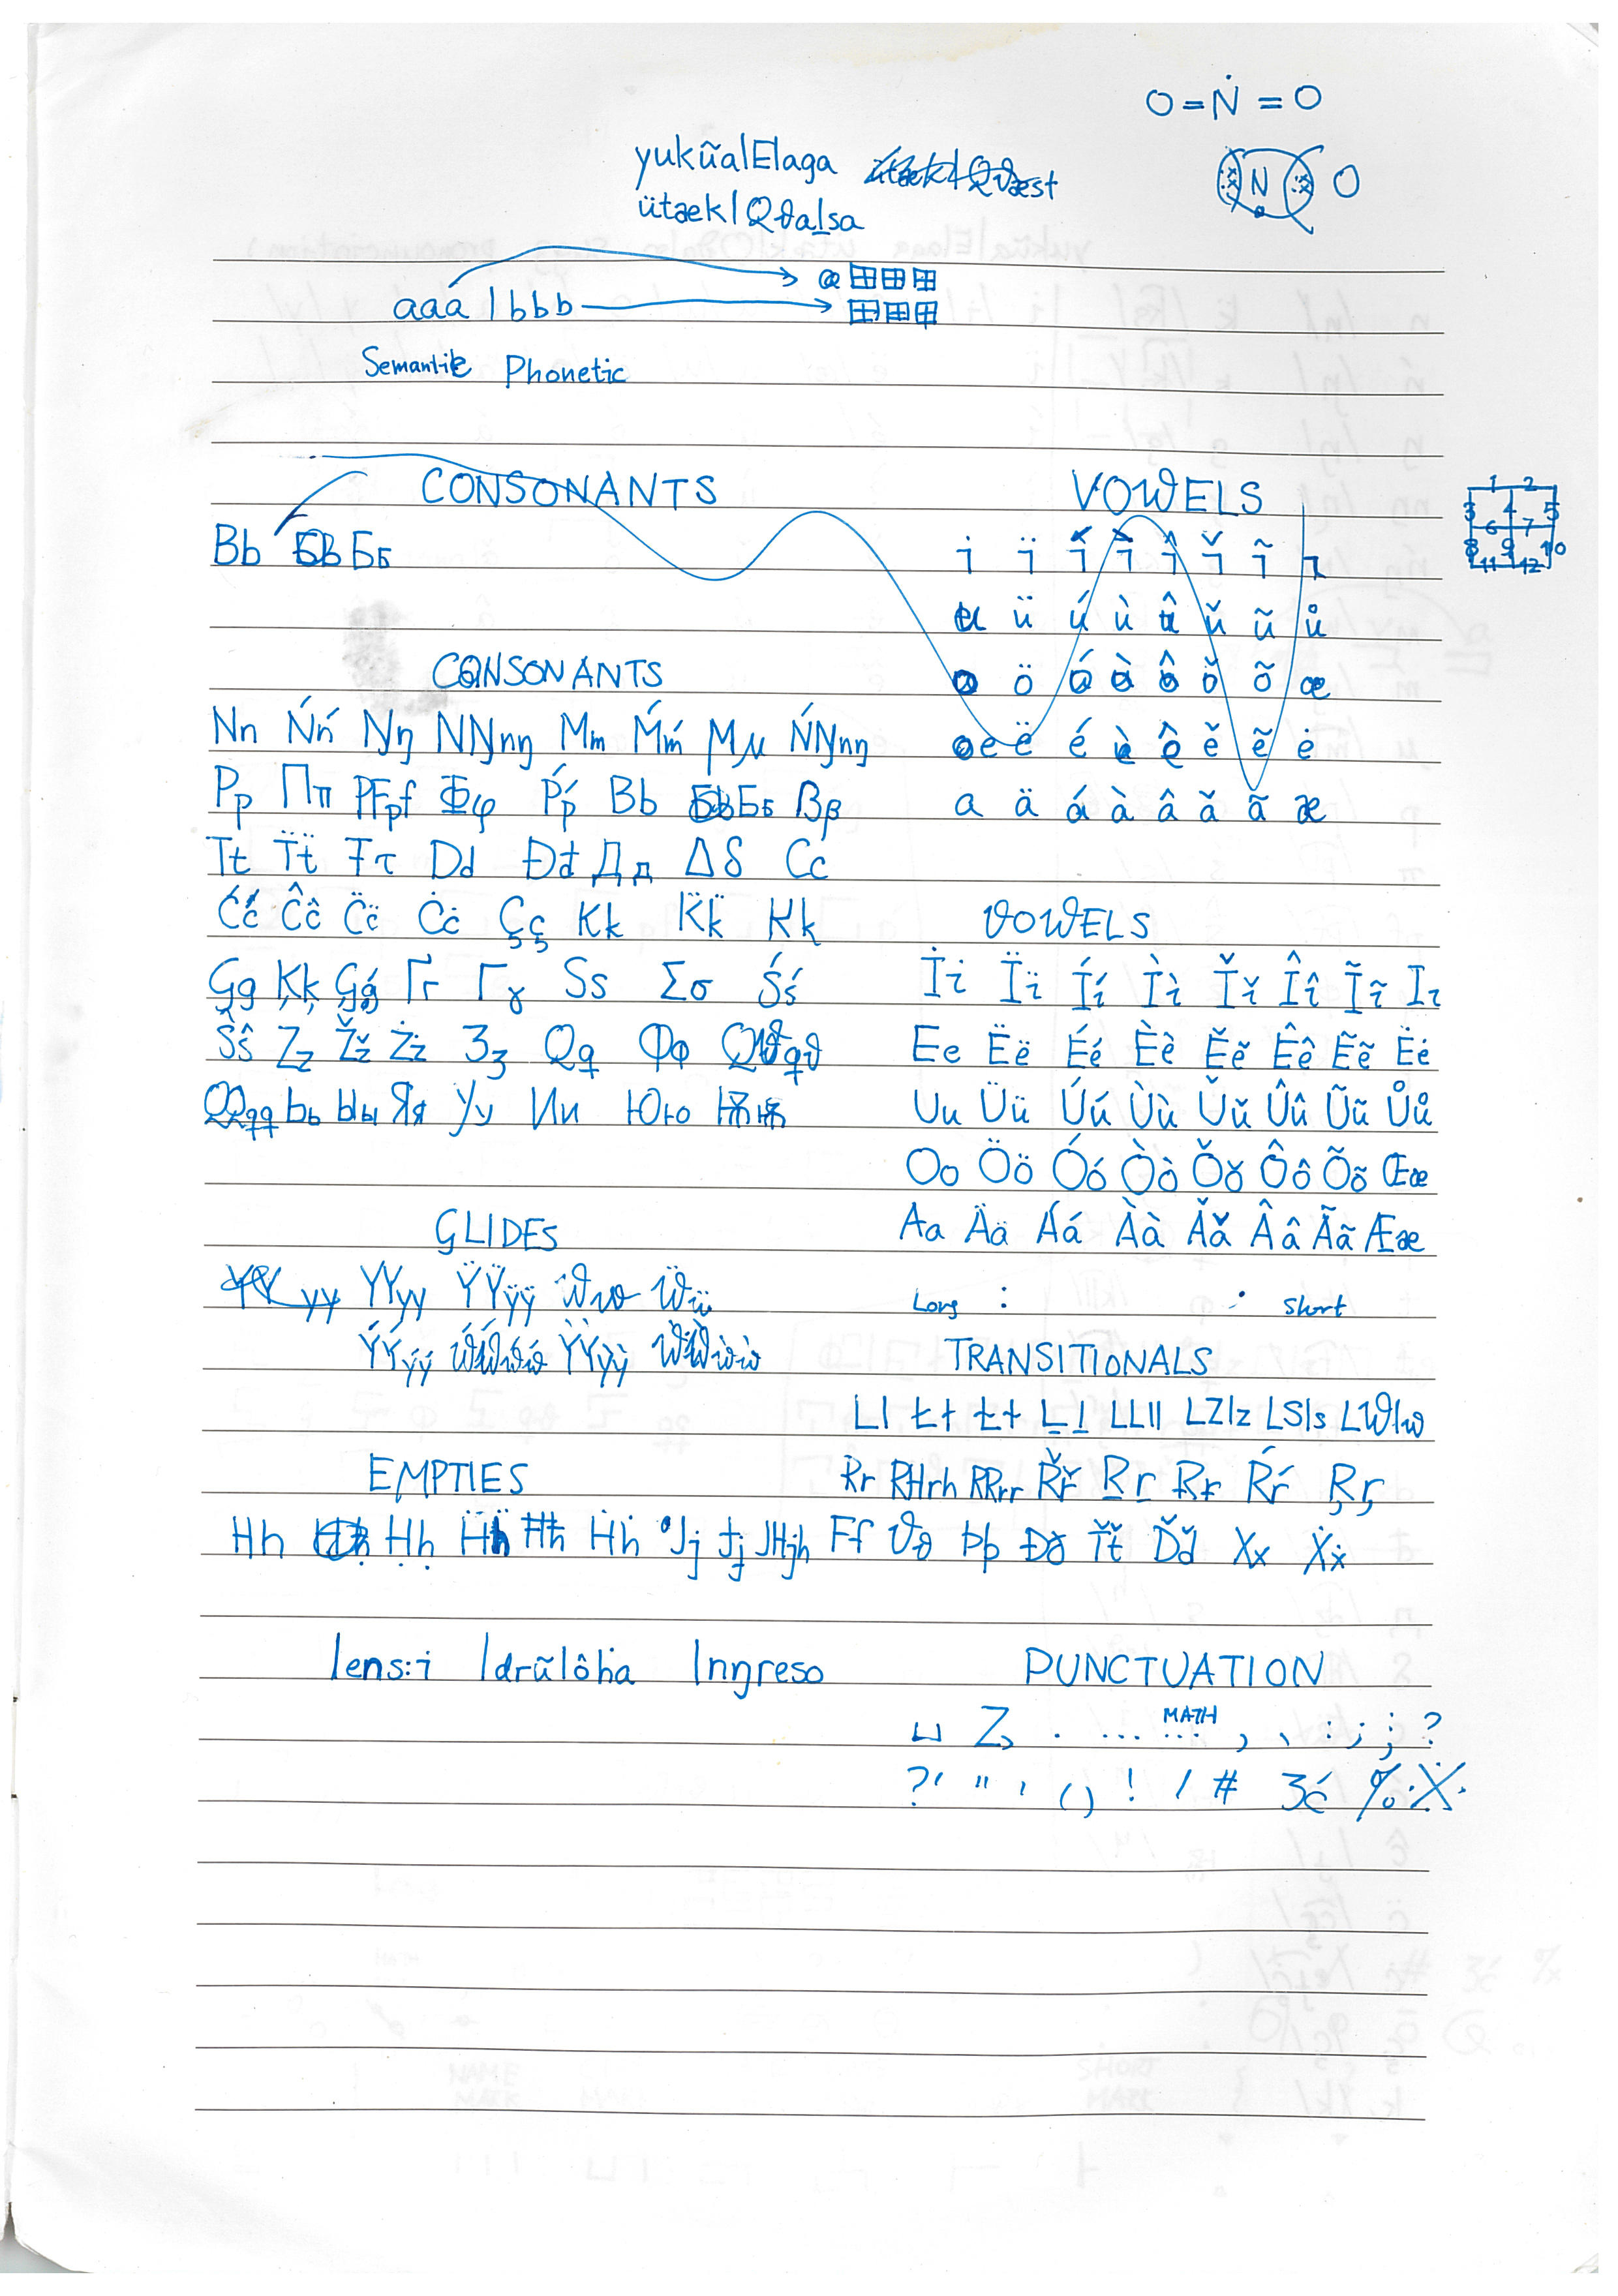 O=Ṅ=O
N O
yukũal|Elaga
ütaek|Qϑal̲sa
aaa | bbb
Semantic Phonetic
CONSONANTS
Bb Бб
VOWELS
1 2
3 4 5
6 7
8 9 10
11 12
ü ú ù û ǔ ũ ů
ö ó ò ô ǒ õ œ
e ë é è ê ě ẽ ė
a ä á à â ǎ ã æ
CONSONANTS
Nn Ńń Ŋŋ NŊnŋ Mm Ḿḿ Mμ ŃŊnŋ
Pp Пп PFpf Фφ Ṕṕ Bb Бб Ββ
Tt T̈ẗ Ŧτ Dd Đđ Дд Δδ Cc
Ćć Ĉĉ C̈c̈ Ċċ Çç Kk K̈k̈ Ꞣk
Gg Ķķ Ǵǵ Ѓг Γγ Ss Σσ Śś
Ŝŝ Zz Žž Żż Зз Qq Фф
Ьь Ыы Яя Уу Ии Юю
VOWELS
İi Ïï Íí Ìì Ǐǐ Îî Ĩĩ Iı
Ee Ëë Éé Èè Ěě Êê Ẽẽ Ėė
Uu Üü Úú Ùù Ǔǔ Ûû Ũũ Ůů
Oo Öö Óó Òò Ǒǒ Ôô Õõ Œœ
Aa Ää Áá Àà Ǎǎ Ââ Ãã Ææ
GLIDES
YYyy ŸŸÿÿ
ÝÝýý ỲỲỳỳ
Long : · Short
TRANSITIONALS
Ll Łł Ƚƚ L̲l̲ LLll LZlz LSls LWlw
Rr RHrh RRrr Řř R̲r̲ Ɍɍ Ŕŕ Ŗŗ
EMPTIES
Hh Ḥḥ Ḧḧ Ħħ Ḣḣ Jj Ɉɉ JHjh Ff Þþ Đð Ťť Ďď Xx Ẋẋ
lens:i ldrũlôḣa lnŋreso
PUNCTUATION
⊔ Z, . ... MATH ... , 、 : ; ?
?' " ' () ! / # 3ć %